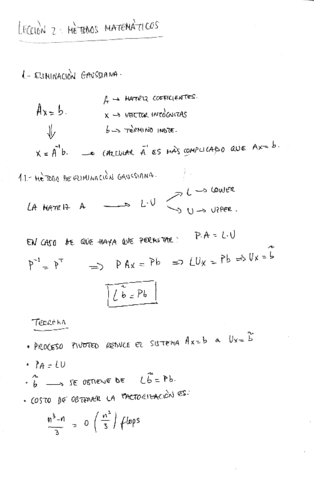 LECCIÓN 2: MÉTODOS MATEMÁTICOS
1.- ELIMINACIÓN GAUSSIANA.
Ax = b. A → MATRIZ COEFICIENTES.
x → VECTOR INCÓGNITAS
b → TÉRMINO INDTE.
⇓
x = A⁻¹b. → CALCULAR A⁻¹ ES MÁS COMPLICADO QUE Ax=b.
1.1- MÉTODO DE ELIMINACIÓN GAUSSIANA.
LA MATRIZ A → L·U
L → LOWER
U → UPPER.
EN CASO DE QUE HAYA QUE PERMUTAR: P·A = L·U
P⁻¹ = Pᵀ ⇒ PAx = Pb ⇒ LUx = Pb ⇒ Ux = b̃
Lb̃ = Pb
TEOREMA
• PROCESO PIVOTEO REDUCE EL SISTEMA Ax=b a Ux = b̃
• PA = LU
• b̃ → SE OBTIENE DE Lb̃ = Pb.
• COSTO DE OBTENER LA FACTORIZACIÓN ES:
(n³-n)/3 = O(n³/3) flops